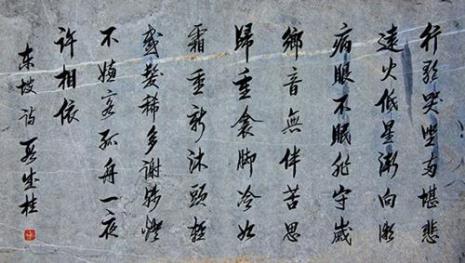 行歌哭野兩堪悲
遠火低星漸向微
病眼不眠非守歲
鄉音無伴苦思
歸重衾脚冷知
霜重新沐頭輕
感髮稀多謝殘燈
不嫌客孤舟一夜
許相依
東坡詩